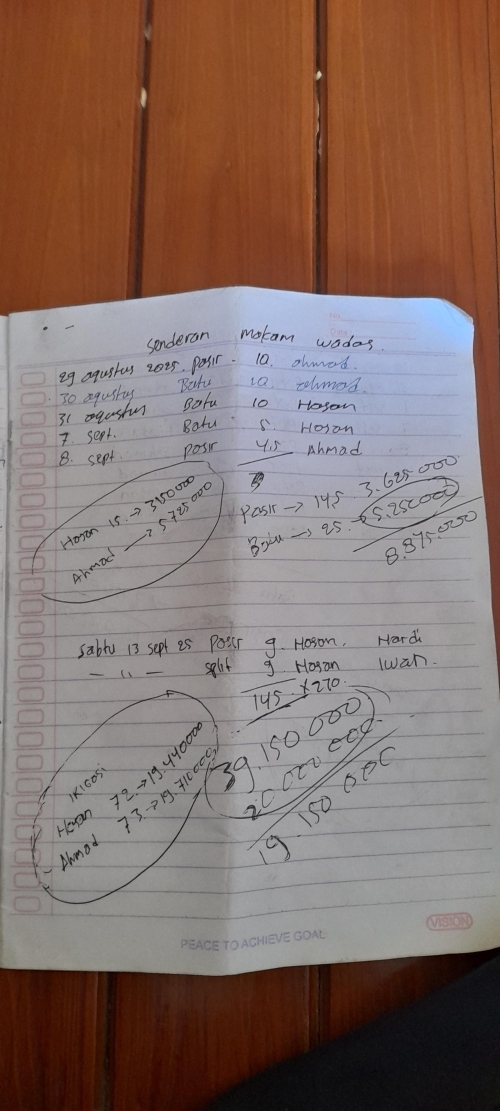 senderan makam wadas.
29 agustus 2025 pasir - 10. ahmad.
30 agustus Batu 10 ahmad.
31 agustus Batu 10 Hasan
7. sept. Batu 5 Hasan
8. sept pasir 4,5 Ahmad
Hasan 15 → 3150 000
Ahmad → 5 725 000
Pasir → 14,5 3.625 000
Batu → 25 → 5.250000
8.875.000
Sabtu 13 sept 25 Pasir 9. Hasan. Hardi
— " — split 9 Hasan Iwan.
145 x 270.
39.150 000
20 000 000
19.150 000
Hasan 72 → 19.440000
Ahmad 73 → 19.710000
PEACE TO ACHIEVE GOAL
VISION